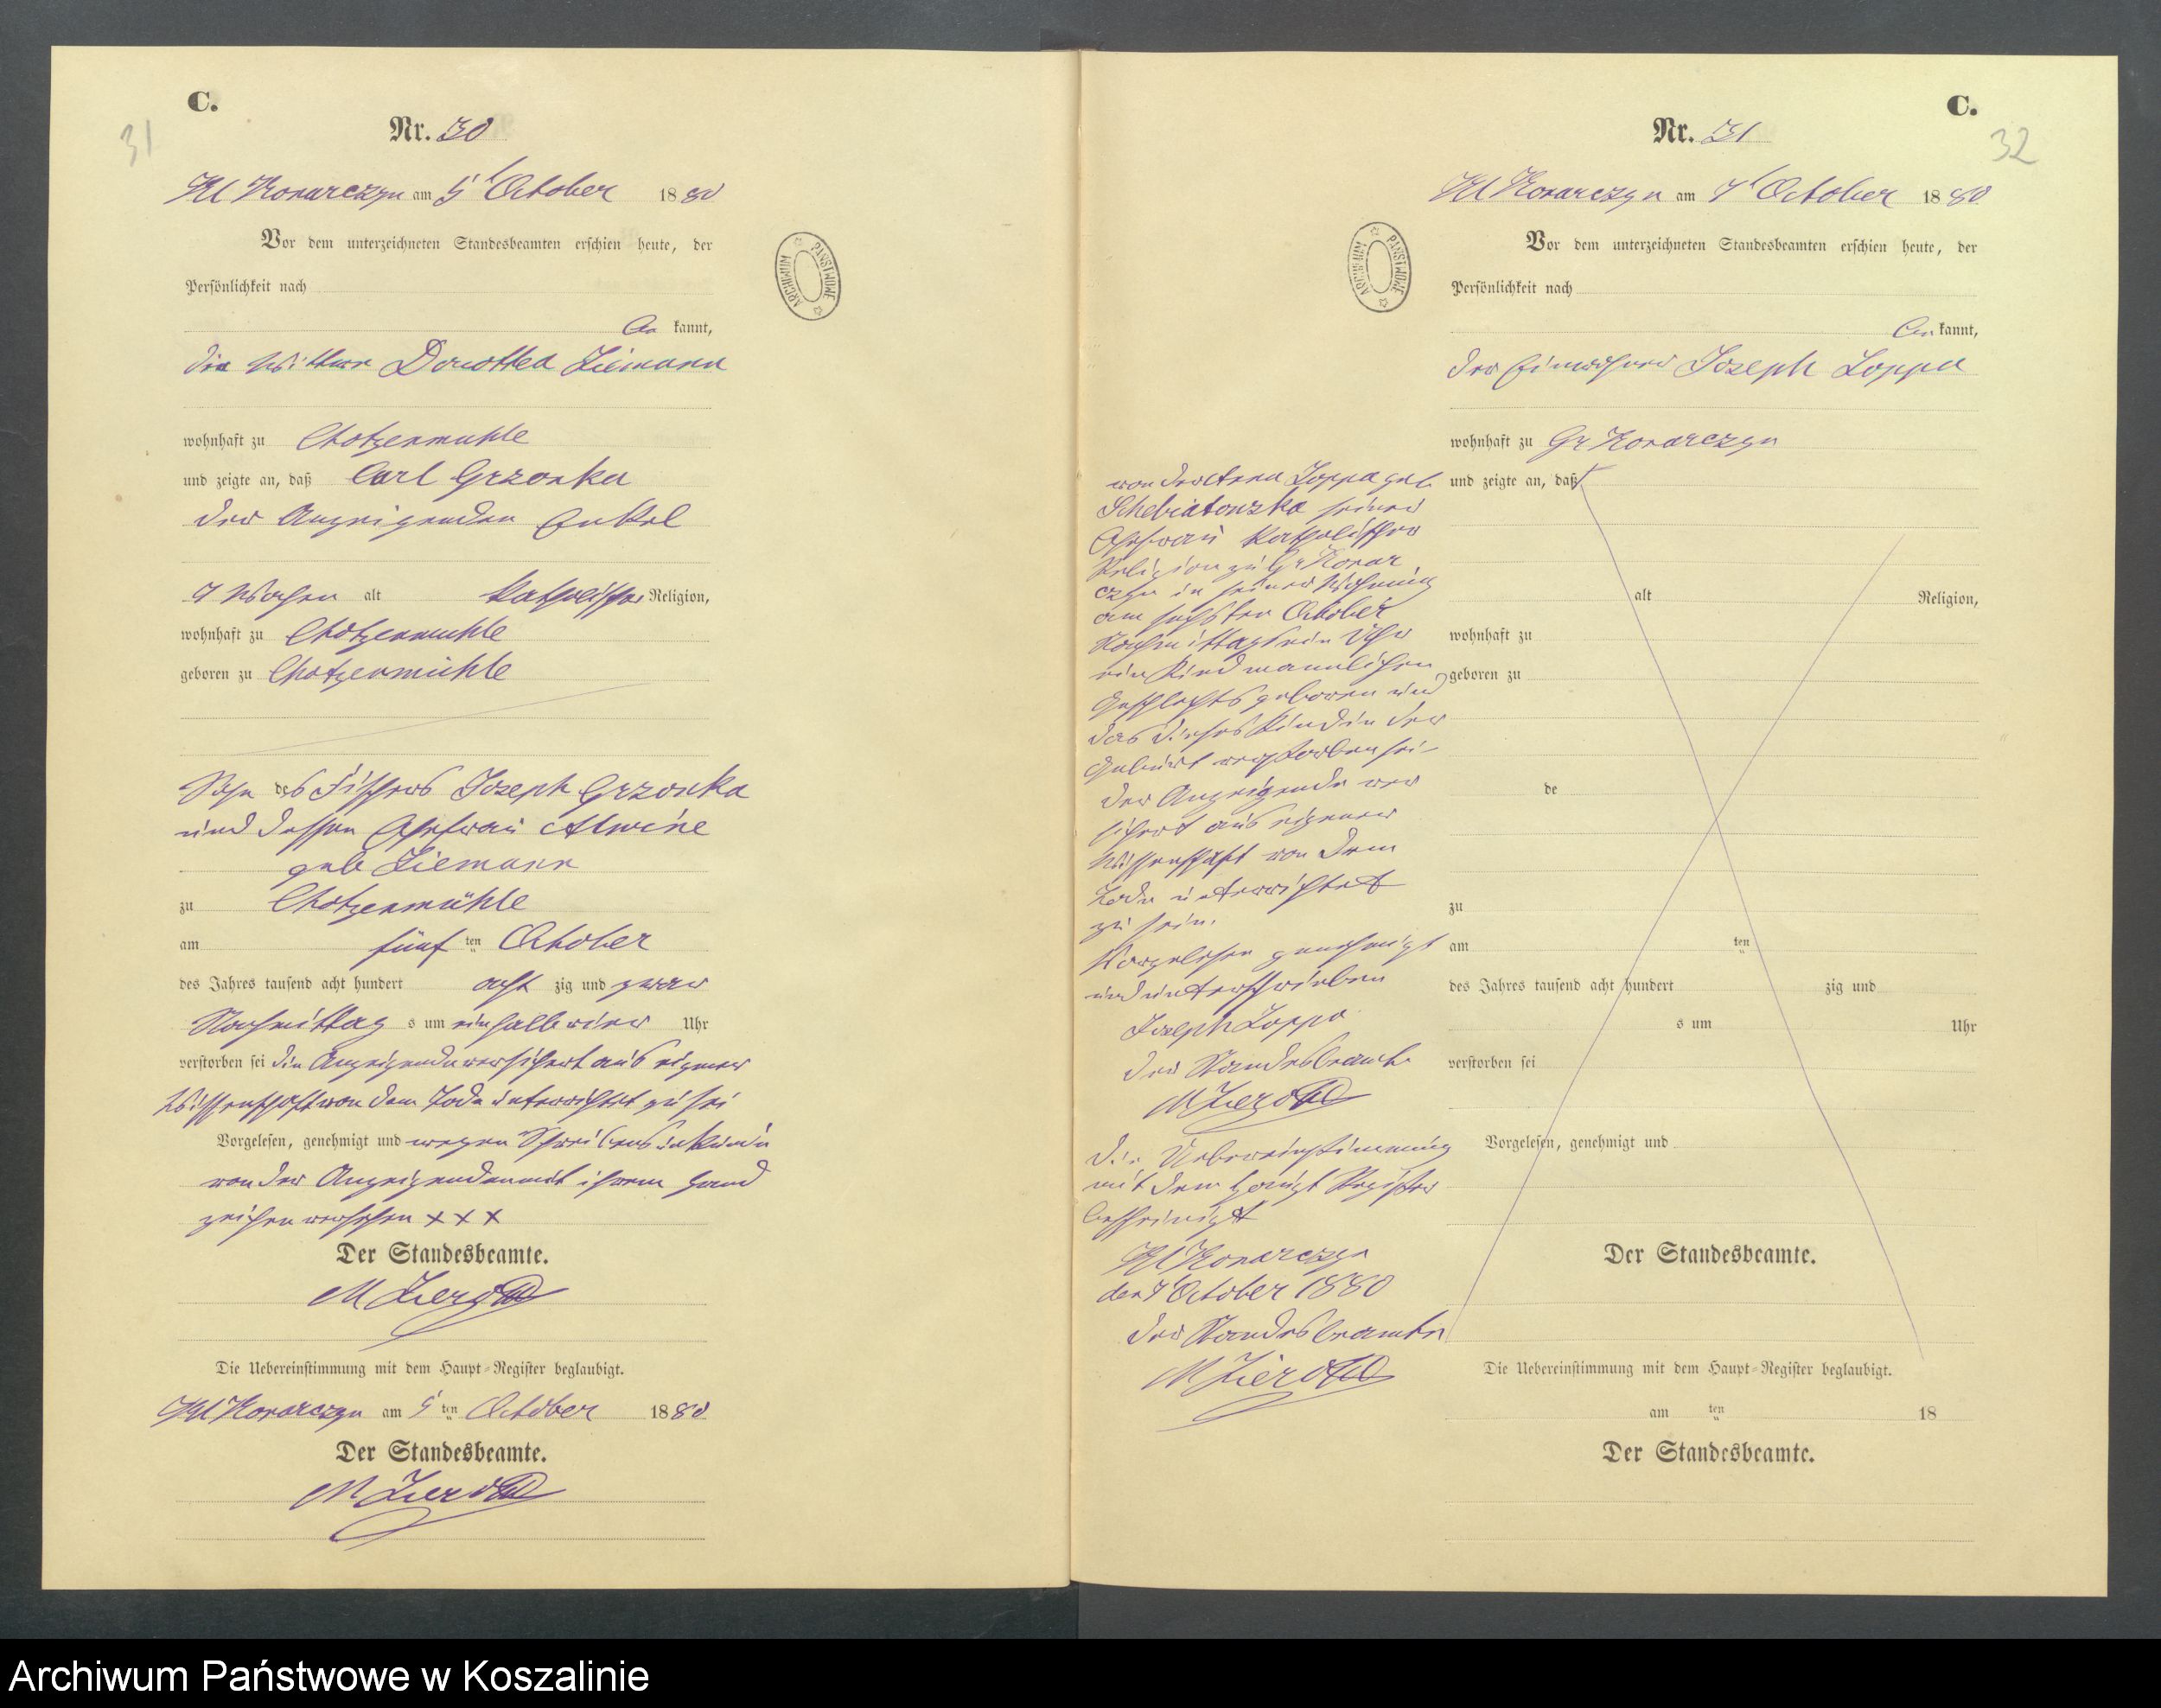 C.
31
Nr. 30
Kl Konarczyn am 5t October 1880
Vor dem unterzeichneten Standesbeamten erschien heute, der
Persönlichkeit nach
be kannt,
die Wittwe Dorothea Ziemann
wohnhaft zu Chotzenmühle
und zeigte an, daß Carl Grzonka
der Anzeigenden Enkel
Wochen alt katholischer Religion,
wohnhaft zu Chotzenmühle
geboren zu Chotzenmühle
Sohn des Fischers Joseph Grzonka
und dessen Ehefrau Alwine
geb Ziemann
zu Chotzenmühle
am fünf ten October
des Jahres tausend acht hundert acht zig und zwar
Nachmittag s um ein halb vier Uhr
verstorben sei die Anzeigende versichert aus eigener
Wissenschaft von dem Tode unterrichtet zu sei
Vorgelesen, genehmigt und wegen Schreibens unkunde
von der Anzeigenden mit ihrem Hand
zeichen versehen xxx
Der Standesbeamte.
M
Die Uebereinstimmung mit dem Haupt-Register beglaubigt.
Kl Konarczyn am 5 ten October 1880
Der Standesbeamte.
M
C.
32
Nr. 31
Kl Konarczyn am 7t October 1880
Vor dem unterzeichneten Standesbeamten erschien heute, der
Persönlichkeit nach
be kannt,
der Einwohner Joseph Loppa
wohnhaft zu Gr Konarczyn
und zeigte an, daß
alt Religion,
wohnhaft zu
geboren zu
de
zu
am ten
des Jahres tausend acht hundert zig und
s um Uhr
verstorben sei
Vorgelesen, genehmigt und
Der Standesbeamte.
Die Uebereinstimmung mit dem Haupt-Register beglaubigt.
am ten 18
Der Standesbeamte.
von der Loppa geb
seiner
Ehefrau katholischer
Religion zu Gr Konar
czyn in seiner Wohnung
am sechsten October
Nachmittags ein Uhr
ein Kind männlichen
Geschlechts geboren und
das dieses Kind in der
Geburt verstorben sei
der Anzeigende ver
sichert aus eigener
Wissenschaft von dem
Tode unterrichtet
zu sein.
Vorgelesen genehmigt
und unterschrieben
Joseph Loppa
der Standesbeamte
M
Die Uebereinstimmung
mit dem Haupt Register
bescheinigt
Kl Konarczyn
den 7t October 1880
der Standesbeamte
M
ARCHIWUM PAŃSTWOWE
ARCHIWUM PAŃSTWOWE
Archiwum Państwowe w Koszalinie